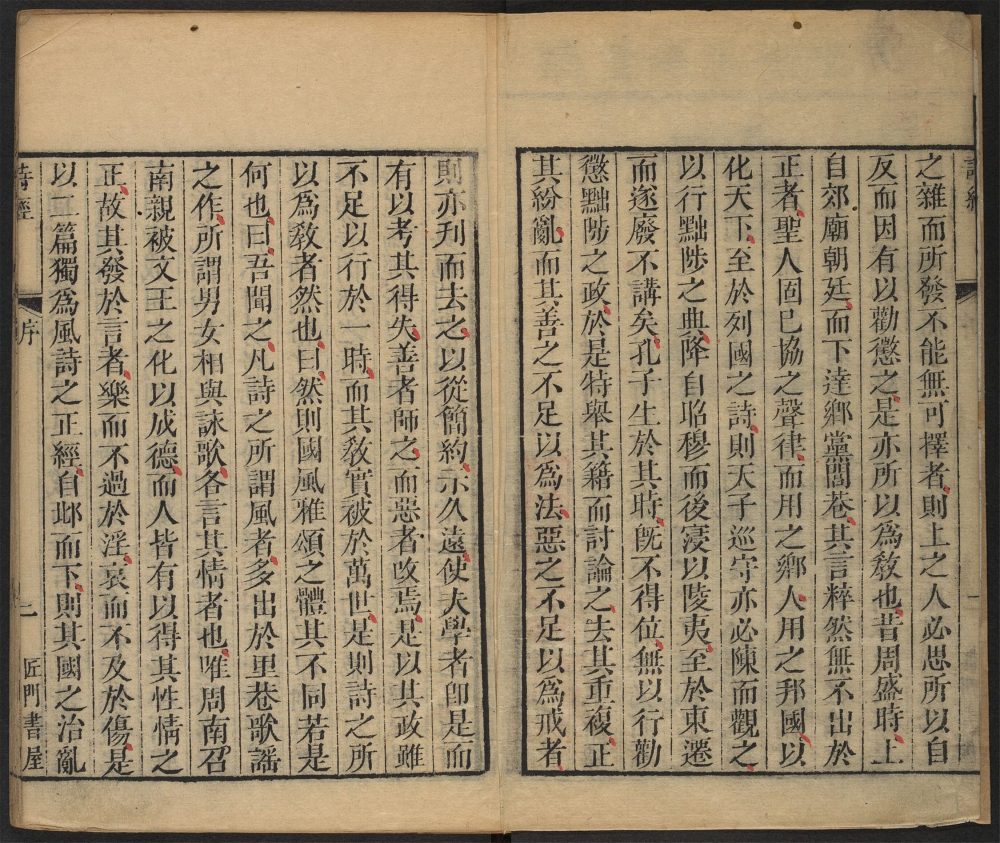 詩經
之雜而所發不能無可擇者則上之人必思所以自
反而因有以勸懲之是亦所以爲教也昔周盛時上
自郊廟朝廷而下達鄉黨閭巷其言粹然無不出於
正者聖人固已協之聲律而用之鄉人用之邦國以
化天下至於列國之詩則天子巡守亦必陳而觀之
以行黜陟之典降自昭穆而後寖以陵夷至於東遷
而遂廢不講矣孔子生於其時旣不得位無以行勸
懲黜陟之政於是特舉其籍而討論之去其重複正
其紛亂而其善之不足以爲法惡之不足以爲戒者
則亦刊而去之以從簡約示久遠使夫學者卽是而
有以考其得失善者師之而惡者改焉是以其政雖
不足以行於一時而其教實被於萬世是則詩之所
以爲教者然也曰然則國風雅頌之體其不同若是
何也曰吾聞之凡詩之所謂風者多出於里巷歌謠
之作所謂男女相與詠歌各言其情者也唯周南召
南親被文王之化以成德而人皆有以得其性情之
正故其發於言者樂而不過於淫哀而不及於傷是
以二篇獨爲風詩之正經自邶而下則其國之治亂
詩經
序
二
匠門書屋